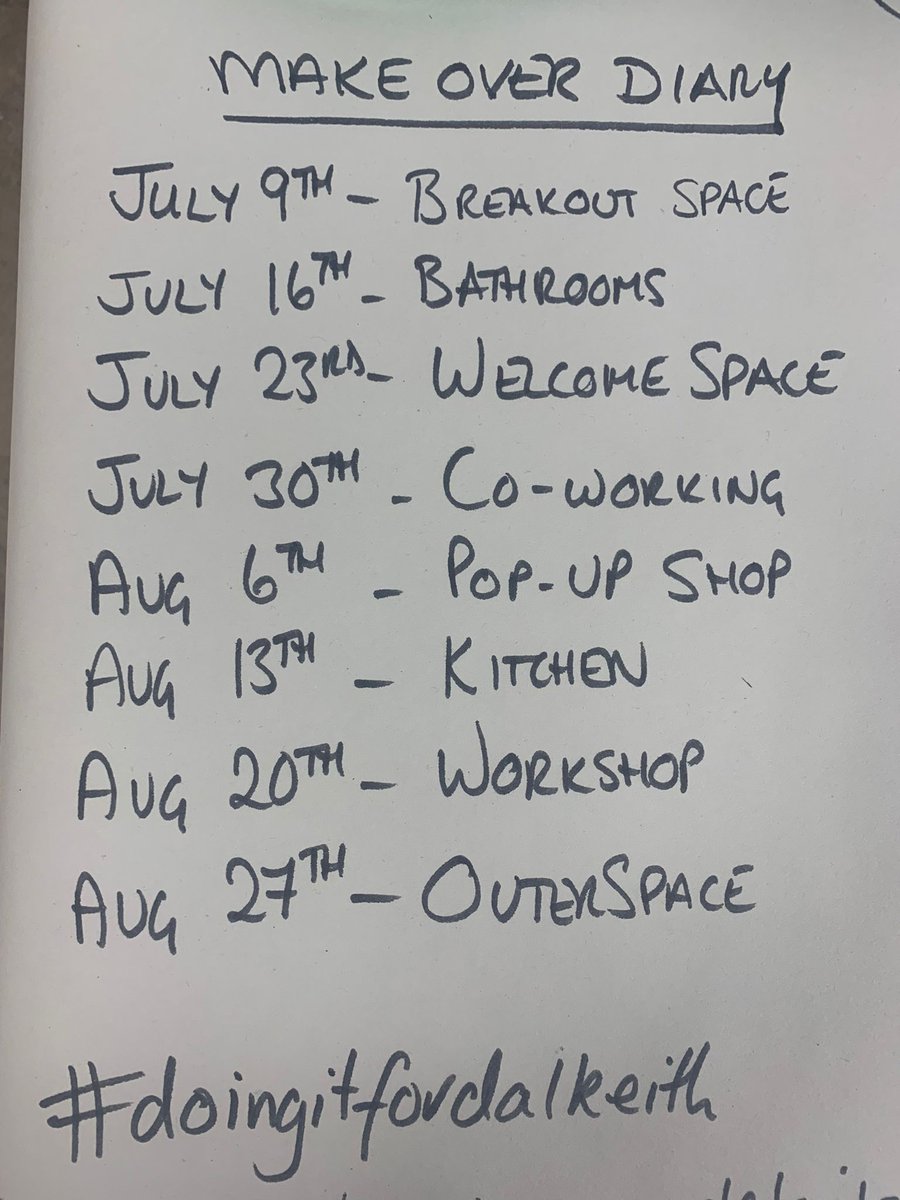 MAKE OVER DIARY
JULY 9TH - BREAKOUT SPACE
JULY 16TH - BATHROOMS
JULY 23RD - WELCOME SPACE
JULY 30TH - CO-WORKING
AUG 6TH - POP-UP SHOP
AUG 13TH - KITCHEN
AUG 20TH - WORKSHOP
AUG 27TH - OUTERSPACE
#doingitfordalkeith